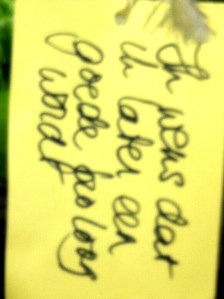 Ik wens dat
ik later een
goede
word